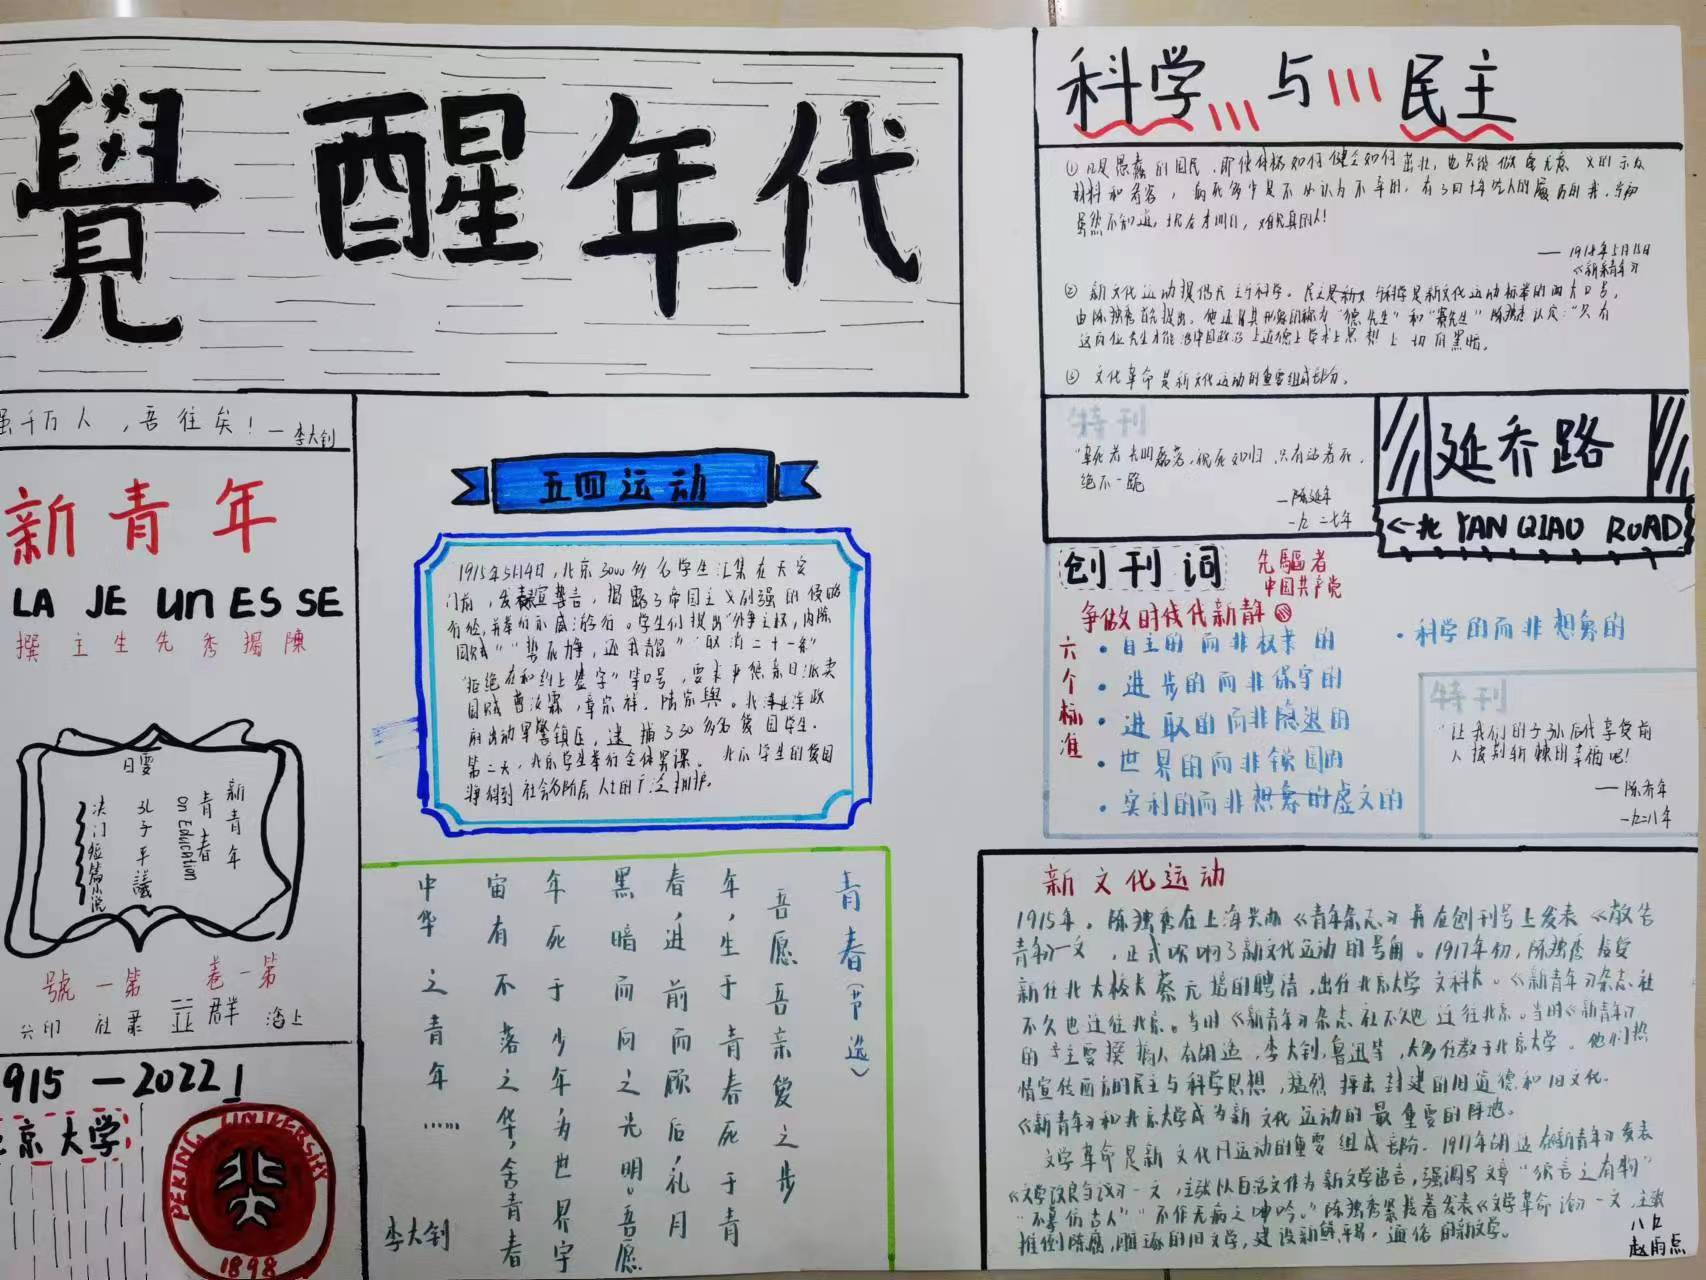 覺醒年代
虽千万人，吾往矣！—李大钊
新青年
LA JEUNESSE
撰主生先秀獨陳
新青年
青春
on Education
孔子平議
决门短篇小说
號一第 卷一第
1915—2022
北京大学
PEKING UNIVERSITY
1898
五四运动
1915年5月4日，北京3000多名学生汇集在天安
门前，发表宣誓言，揭露了帝国主义列强的侵略
行径，并举行示威游行。学生们提出“外争主权，内除
国贼”“誓死力争，还我青岛”“取消二十一条”
“拒绝在和约上签字”等口号，要求严惩亲日派卖
国贼曹汝霖，章宗祥，陆宗舆。北洋政
府出动军警镇压，逮捕了30多名爱国学生.
第二天，北京学生举行全体罢课。北京学生的爱国
得到社会各阶层人士的广泛拥护。
青春（节选）
吾愿吾亲爱之步
年，生于青春死于青
春，进前而顾后，礼月
黑暗而向之光明。吾愿
年死于少年为世界宇
宙有不落之华，舍青春
中华之青年……
李大钊
科学与民主
① 凡是愚蠢的国民，即使体格如何健全如何茁壮，也只能做毫无意义的示众
材料和看客，病死多少是不必认为不幸的，有了四千年吃人的履历的我，当初
虽然不知道，现在才明白，难见真的人！
—1918年5月15日
《新青年》
② 新文化运动提倡民主与科学。民主与科学是新文化运动标举的两大口号，
由陈独秀首先提出，他还自具形象的称为“德先生”和“赛先生”陈独秀认定：“只有
这两位先生才能治中国政治上道德上学术上思想上一切的黑暗。
③ 文化革命是新文化运动的重要组成部分。
特刊
“革死者光明磊落，视死如归，只有站着死，
绝不一跪
—陈延年
一九二七年
延乔路
←北 YAN QIAO ROAD
创刊词
先驅者
中国共产党
争做时代代新青年
六个标准
·自主的而非奴隶的
·进步的而非保守的
·进取的而非隐退的
·世界的而非锁国的
·实利的而非想象的虚文的
·科学的而非想象的
特刊
“让我们的子孙后代享受前
人披荆斩棘的幸福吧！
—陈乔年
一九二八年
新文化运动
1915年，陈独秀在上海创办《青年杂志》并在创刊号上发表《敬告
青年》一文，正式吹响了新文化运动的号角。1917年初，陈独秀接受
新任北大校长蔡元培的聘请，出任北京大学文科长。《新青年》杂志社
不久也迁往北京。当时《新青年》杂志社不久也迁往北京。当时《新青年》
的主要撰稿人有胡适，李大钊，鲁迅等，大多任教于北京大学。他们热
情宣传西方的民主与科学思想，猛烈抨击封建的旧道德和旧文化.
《新青年》和北京大学成为新文化运动的最重要的阵地。
文学革命是新文化月运动的重要组成部分.1917年胡适在《新青年》发表
《文学改良刍议》一文，主张以白话文作为新文学语言，强调写文章“须言之有物”
“不摹仿古人”“不作无病之呻吟。”陈独秀紧接着发表《文学革命论》一文，主张
推倒陈腐，雕琢的旧文学，建设新鲜，平易，通俗的新文学。
赵雨点